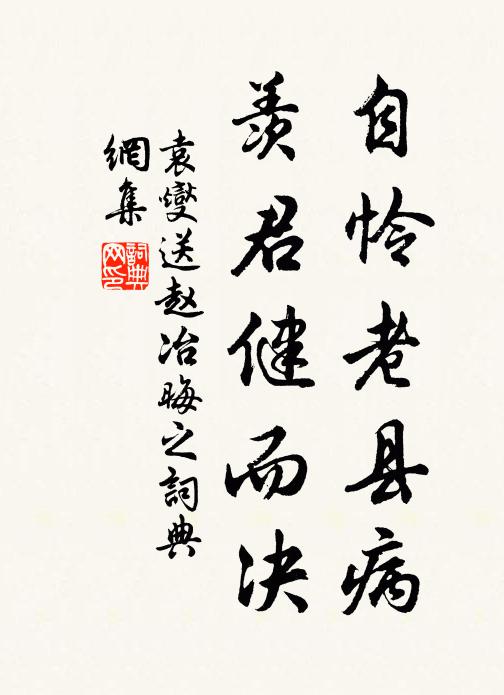 自怜老县病
羡君健而决
袁燮送赵冶晦之詞典
網集
詞典
网印